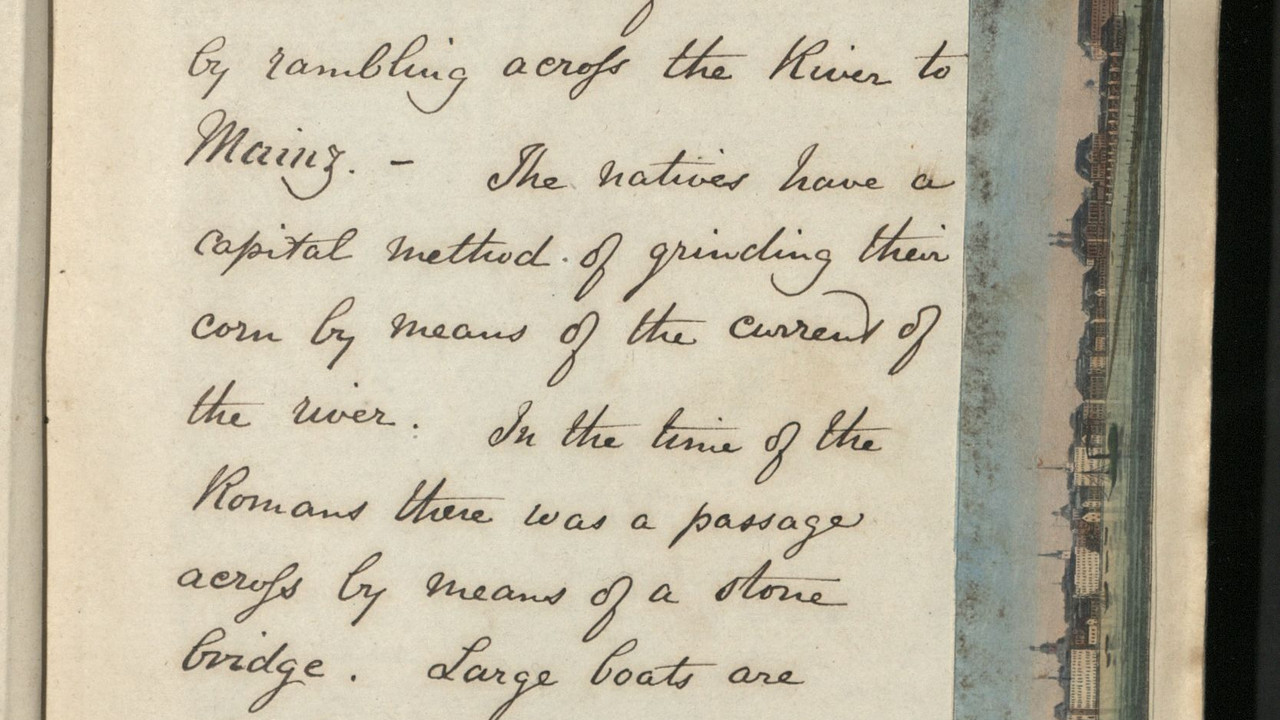 by rambling across the River to
Mainz. - The natives have a
capital method of grinding their
corn by means of the current of
the river. In the time of the
Romans there was a passage
across by means of a stone
bridge. Large boats are